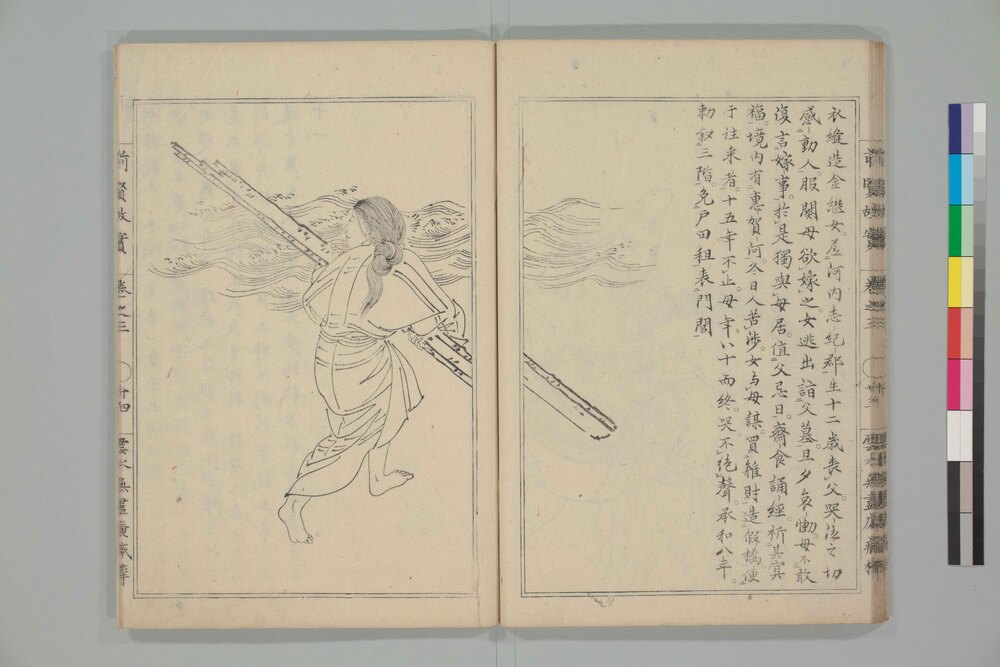 衣縫造金繼女。居河内志紀郡。生十二歳喪父。哭泣之切
感動人。服闋母欲嫁之。女逃出詣父墓。旦夕哀慟。母不敢
復言嫁事。於是獨與母居。値父忌日。齋食誦經。祈其冥
福。境内有惠賀河。冬日人苦渉。女与母謀。買雜財造假橋。便
于往来者。十五年不止。母年八十而終。哭不絶聲。承和八年。
勅叙三階。免戸田租。表門閭
前賢故實
卷之三
廿四
雲水無盡庵